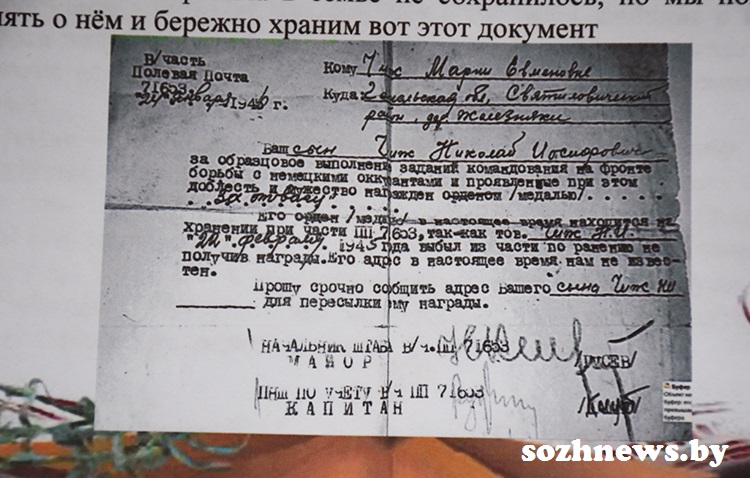 в семье не сохранилось, но мы
о нём и бережно храним вот этот документ
В/часть
Полевая Почта
71653
1945 г.
Кому Чиж Марии Евменовне
Куда: обл, Святиловический
район, дер Железняки
Ваш сын Чиж Николай
за образцовое выполнени заданий командования на фронте
борьбы с немецкими оккупантами и проявленные при этом
доблесть и мужество награжден орденом /медалью/ . . . . . .
За отвагу
Его орден /медаль/ в настоящее время находится на
хранении при части ПП 71653, так-как тов. Чиж Н.И.
"22" февраля 1945 года выбыл из части по ранению не
получив награды. Его адрс в настоящее время нам не извес-
тен.
Прошу срочно собщить адрес Вашего сына Чиж НИ
для пересылки ему награды.
НАЧАЛЬНИК ШТАБА В/Ч.ПП 71653
МАЙОР
ПНШ ПО УЧЕТУ В/Ч ПП 71653
КАПИТАН
Буфер
sozhnews.by